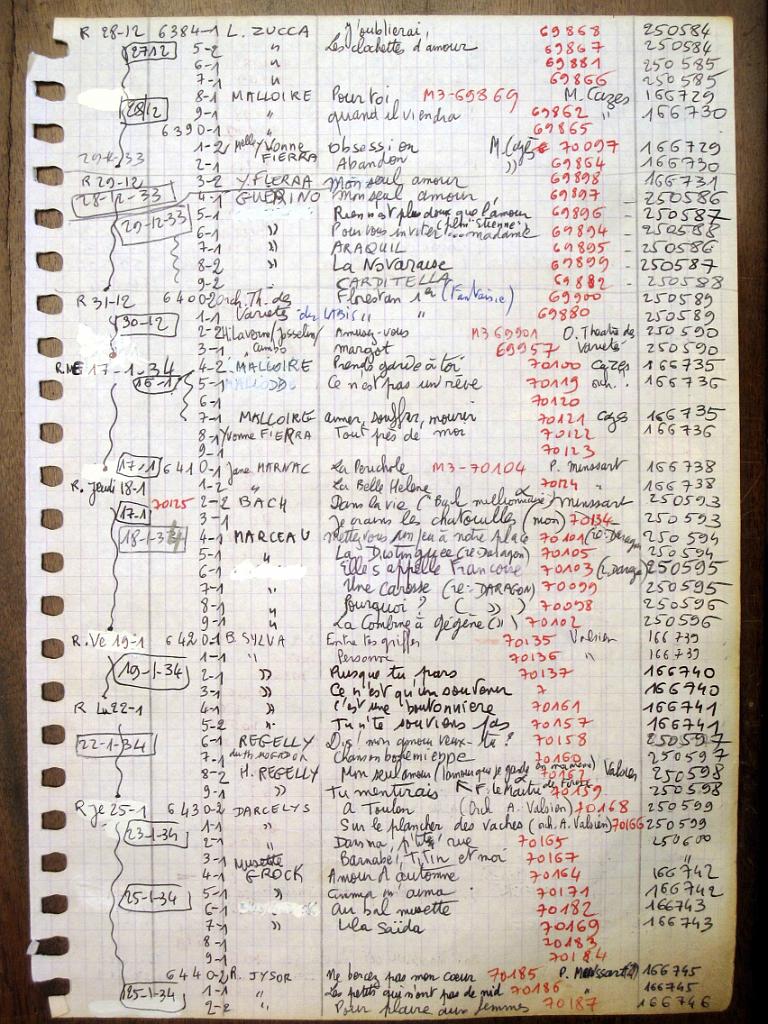 R 28-12 6384-1 L. ZUCCA J'oublierai, 69868 250584
27 12 5-2 " Les clochettes d'amour 69867 250584
6-1 " 69881 250 585
7-1 " 69866 250 585
8-1 MALLOIRE Pour toi M3-69869 M. Cazes 166729
28/12 9-1 quand il viendra 69862 " 166730
6390-1 69865
1-2 Nelly Yvonne FIERRA obsession M. Cazes 70097 166729
29-12-33 2-1 Abandon " 69864 166730
R 29-12 3-2 Y. FIERRA Mon seul amour 69898 166731
28-12-33 4-1 GUERINO Mon seul amour 69897 - 250586
29-12-33 5-1 Rien n'est plus doux que l'amour 69896 - 250587
6-1 " Pour vous inviter ... madame 69894 - 250588
7-1 " ARAQUIL 69895 - 250586
8-2 " La Novaraise 69899 - 250587
9-2 CARDITELLA 69882 - 250588
R 31-12 6400-2 Orch. Th. des Florestan 1er (Fantaisie) 69900 250589
1-1 Varietés " " 69880 250589
30-12 2-2 H. Laverne/Josselin/ Amusez-vous M3 69901 O. Theatre des 250 590
3-1 Cambo margot 69957 Variété 250590
R. ME 17-1-34 4-2 MALLOIRE Prends garde à toi 70100 Cazes 166735
16-1 5-1 " Ce n'est pas un rêve 70119 orch. 166736
70120
7-1 MALLOIRE aimer, souffrir, mourir 70121 Cazes 166735
8-1 Yvonne FIERRA Tout près de moi 70122 166736
9-1 70123
17-1 6410-1 Jane MARNAC La Perichole M3-70104 P. Minssart 166738
R. Jeudi 18-1 1-2 " La Belle Helene 70124 " 166738
17-1 70125 2-2 BACH Dans la vie (Bach millionnaire) Minssart 250593
3-1 Je crains les chatouilles (mon) 70134 250593
18-1-34 4-1 MARCEAU Mettez vous un peu à notre place 70101 (re: Daragon 250 594
5-1 " La Distinguée (re Daragon) 70105 250594
6-1 Elle s'appelle Francoise 70103 (r. Daragon) 250595
7-1 " Une Carosse (re: DARAGON) 70099 250595
8-1 " Pourquoi ? ( " ) 70098 250596
9-1 " La Combine à Gégène ( " ) 70102 250596
R. Ve 19-1 6420-1 B. SYLVA Entre tes griffes 70135 Valsien 166 739
19-1-34 1-1 " Personne 70136 " 166 739
2-1 " Puisque tu pars 70137 166740
3-1 " Ce n'est qu'un souvenir 7 166740
R Lu 22-1 4-1 " C'est une boutonnière 70161 166741
5-2 " Tu n'te souviens pas 70157 166741
22-1-34 6-1 REGELLY Dis! mon amour veux-tu? 70158 250597
7-1 Chanson bohemienne 70160 250597
8-2 H. REGELLY Mon seul amour (l'amour que je garde en ma mémoire) 70162 Valsien 250598
9-1 " Tu mentirais F. le Maître de forges 70159 250598
R je 25-1 6430-2 DARCELYS A Toulon (Orch A. Valsien) 70168 250599
23-1-34 1-1 " Sur le plancher des vaches (orch. A. Valsien) 70166 250599
2-1 " Dans ma p'tite rue 70165 250600
3-1 Musette Barnabé, Titin et moi 70167 "
4-1 GROCK Amour d'automne 70164 166742
25-1-34 5-1 " 70171 166742
6-1 au bal musette 70182 166743
7-1 " Lila Saïda 70169 166743
8-1 70183
9-1 70184
6440-2 R. JYSOR Ne bercez pas mon coeur 70185 P. Minssart(?) 166745
25-1-34 1-1 " Les petits qui n'ont pas de nid 70186 " 166745
2-2 " Pour plaire aux femmes 70187 166746